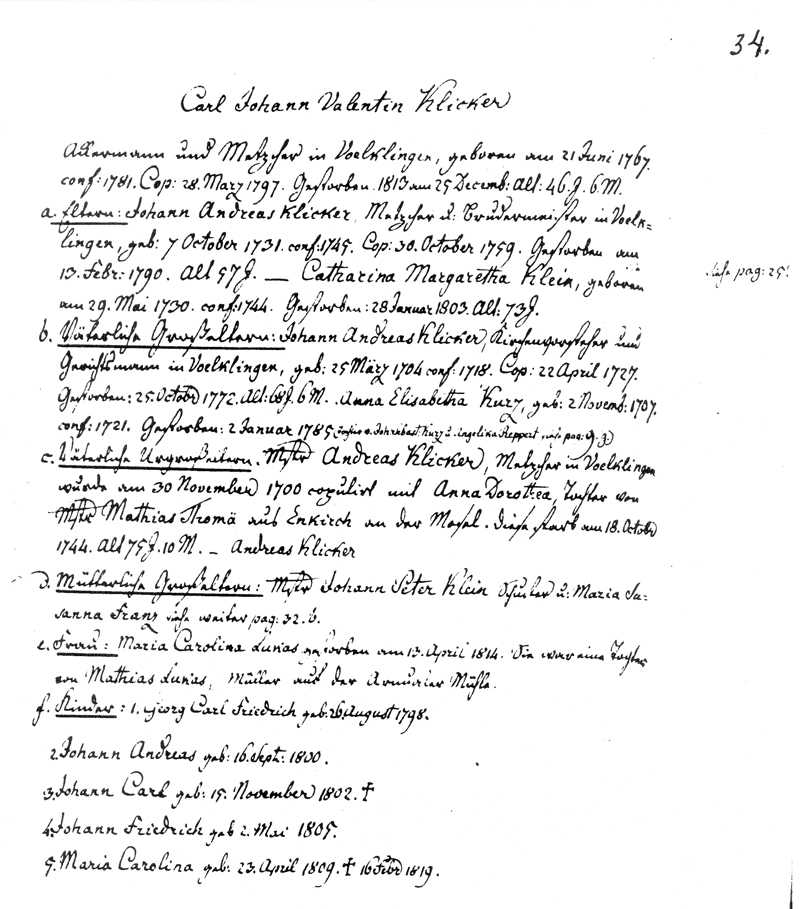 34.
Carl Johann Valentin Klicker
Ackermann und Metzcher in Voelklingen, geboren am 21 Juni 1767.
conf: 1781. Cop: 28. Marz 1797. Gestorben. 1813 am 25 Decemb: Alt: 46. J. 6 M.
a. Eltern: Johann Andreas Klicker, Metzcher u: Brudermeister in Voelk=
lingen, geb: 7 October 1731. conf: 1745. Cop: 30. October 1759. Gestorben am
13. Febr: 1790. Alt 57 J. — Catharina Margaretha Klein, geboren
siehe pag: 25.
am 29. Mai 1730. conf: 1744. Gestorben: 28 Januar 1803. Alt: 73 J.
b. Väterliche Großeltern: Johann Andreas Klicker, Kirchenvorsteher und
Gerichtsmann in Voelklingen, geb: 25 März 1704 conf: 1718. Cop: 22 April 1727.
Gestorben: 25. Octobr 1772. Alt: 68 J. 6 M. Anna Elisabetha Kurz, geb: 2 Novemb: 1707.
conf: 1721. Gestorben: 2 Januar 1785 Kurz u. Angelika Reppert siehe pag: 9. 3)
c. Väterliche Urgroßeltern. Mstr Andreas Klicker, Metzcher in Voelklingen
wurde am 30 November 1700 copulirt mit Anna Dorothea, Tochter von
Mstr Mathias Thomä aus Enkirch an der Mosel. Diese starb am 18. Octobr
1744. Alt 75 J. 10 M. – Andreas Klicker
d. Mütterliche Großeltern: Mstr Johann Peter Klein u: Maria Su=
sanna Franz siehe weiter pag: 32. b.
e. Frau: Maria Carolina Lukas gestorben am 13. April 1814. Sie war eine Tochter
von Mathias Lukas, Müller auf der Arnualer Mühle.
f. Kinder: 1. Georg Carl Friedrich geb: 26 August 1798.
2. Johann Andreas geb: 16. Sept: 1800.
3. Johann Carl geb: 15. November 1802. †
4. Johann Friedrich geb 2. Mai 1805.
5. Maria Carolina geb: 23. April 1809. † 16 Febr 1819.